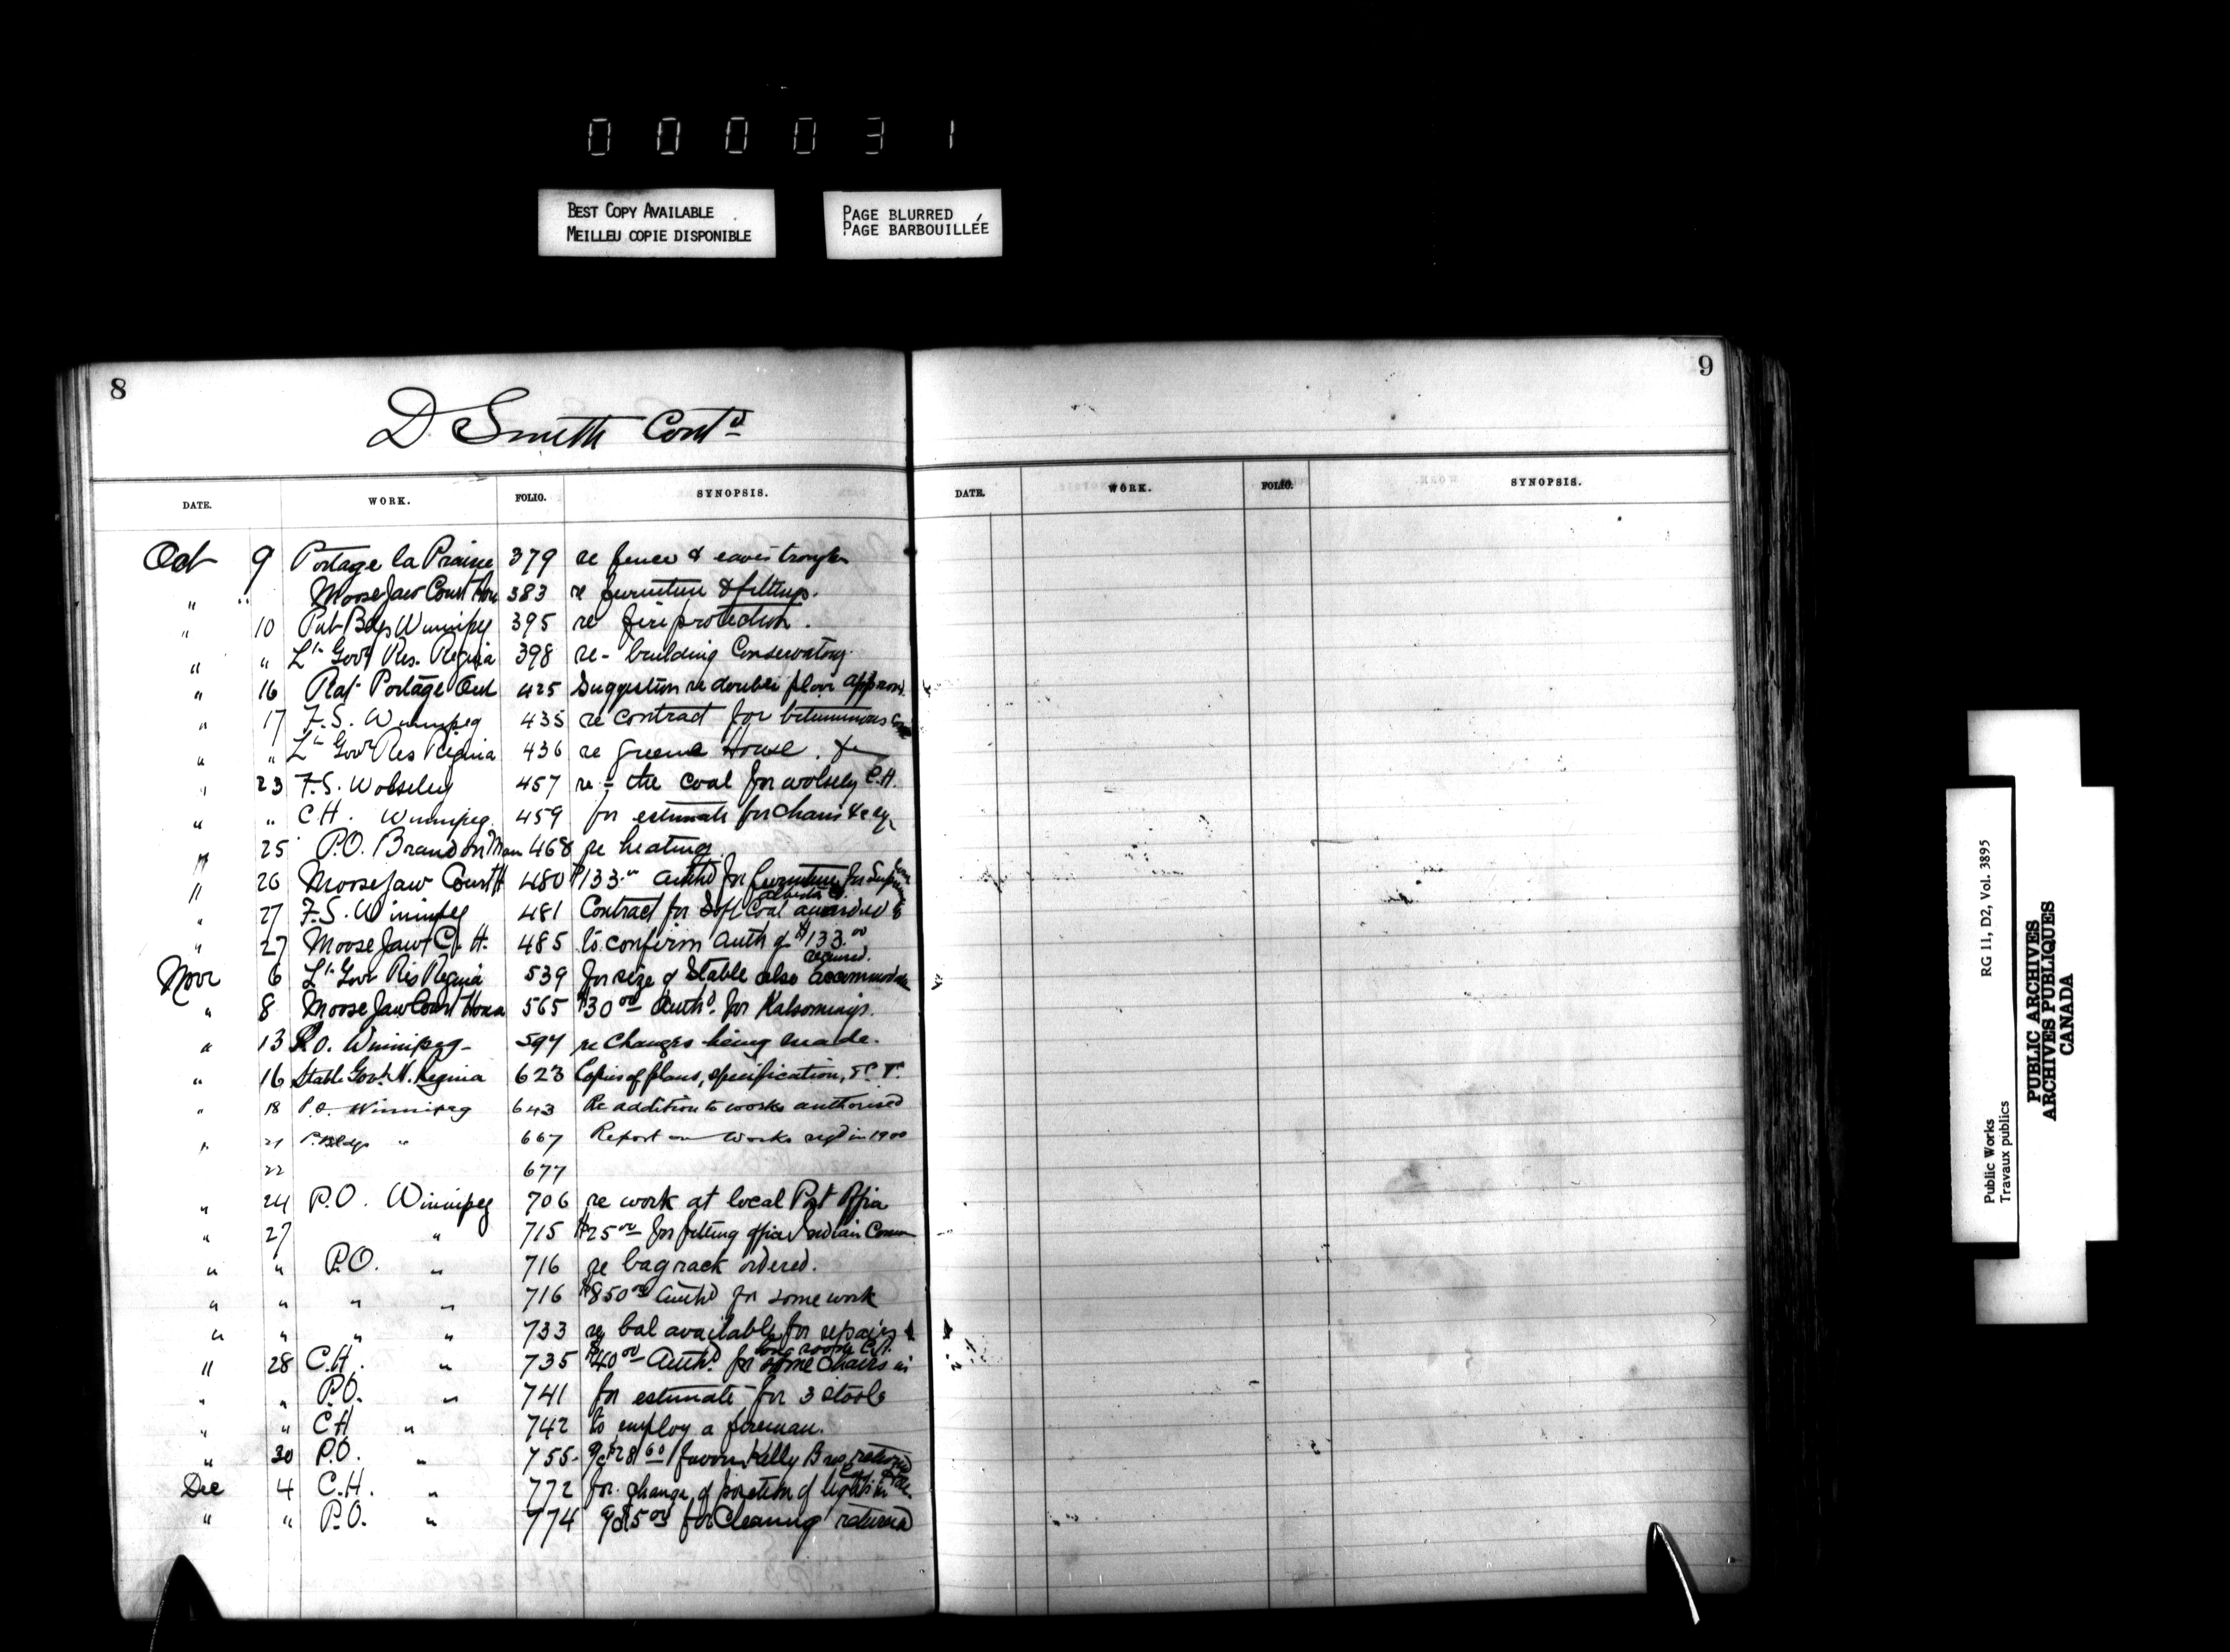 0 0 0 0 3 1
BEST COPY AVAILABLE
MEILLEU COPIE DISPONIBLE
PAGE BLURRED
PAGE BARBOUILLÉE
8
D. Smith Contd
DATE. WORK. FOLIO. SYNOPSIS.
Oct 9 Portage la Prairie 379 re fence & eaves trough
" " Moose Jaw Court Hou 383 re furniture & fittings.
" 10 Pub Bdgs Winnipeg 395 re fire protection.
" " Lt Govr Res. Regina 398 re- building Conservatory.
" 16 Rat Portage Ont 425 Suggestion re double floor approv.
" 17 F.S. Winnipeg 435 re contract for bituminous
" " Lt Govr Res Regina 436 re greene House. &c
" 23 F.S. Wolseley 457 re - the coal for wolsely C.H.
" " C.H. Winnipeg. 459 for estimate for chairs
" 25 P.O. Brandon Man 468 re heating
" 26 Moose Jaw Court H 480 $133.00 Authd for furniture for
" 27 F.S. Winnipeg 481 Contract for Soft Coal awarded
" 27 Moose Jaw C. H. 485 to confirm Auth of $133.00
Novr 6 Lt Govr Res Regina 539 for size of Stable also accommodation required.
" 8 Moose Jaw Court House 565 $30.00 Authd. for Kalsomining.
" 13 P.O. Winnipeg - 594 re Changes being made.
" 16 Stable Govt. H. Regina 623 Copies of plans, specification,
" 18 P.O. Winnipeg 643 Re addition to works authorised
" 21 P. Bldgs " 667 Report on works reqd in 1900
22 677
" 24 P.O. Winnipeg 706 re work at local Post Office
" 27 " 715 $25.00 for fitting office Indian Comm
" " P.O. " 716 re bag rack ordered.
" " " " 716 $850.00 Authd for some work
" " " " 733 re bal available for repairs
" 28 C.H. " 735 $40.00 Authd. for some chairs in long room C.H.
" " P.O. " 741 for estimate for 3 stools
" " C.H " 742 to employ a fireman.
" 30 P.O. " 755- a/c $28.60 favour Kelly Bros returned
Dec 4 C.H. " 772 for change of position of lights in
" " P.O. " 774 a/c $5.00 for Cleaning returned
9
DATE. WORK. FOLIO. SYNOPSIS.
Public Works RG 11, D2, Vol. 3895
Travaux publics
PUBLIC ARCHIVES
ARCHIVES PUBLIQUES
CANADA